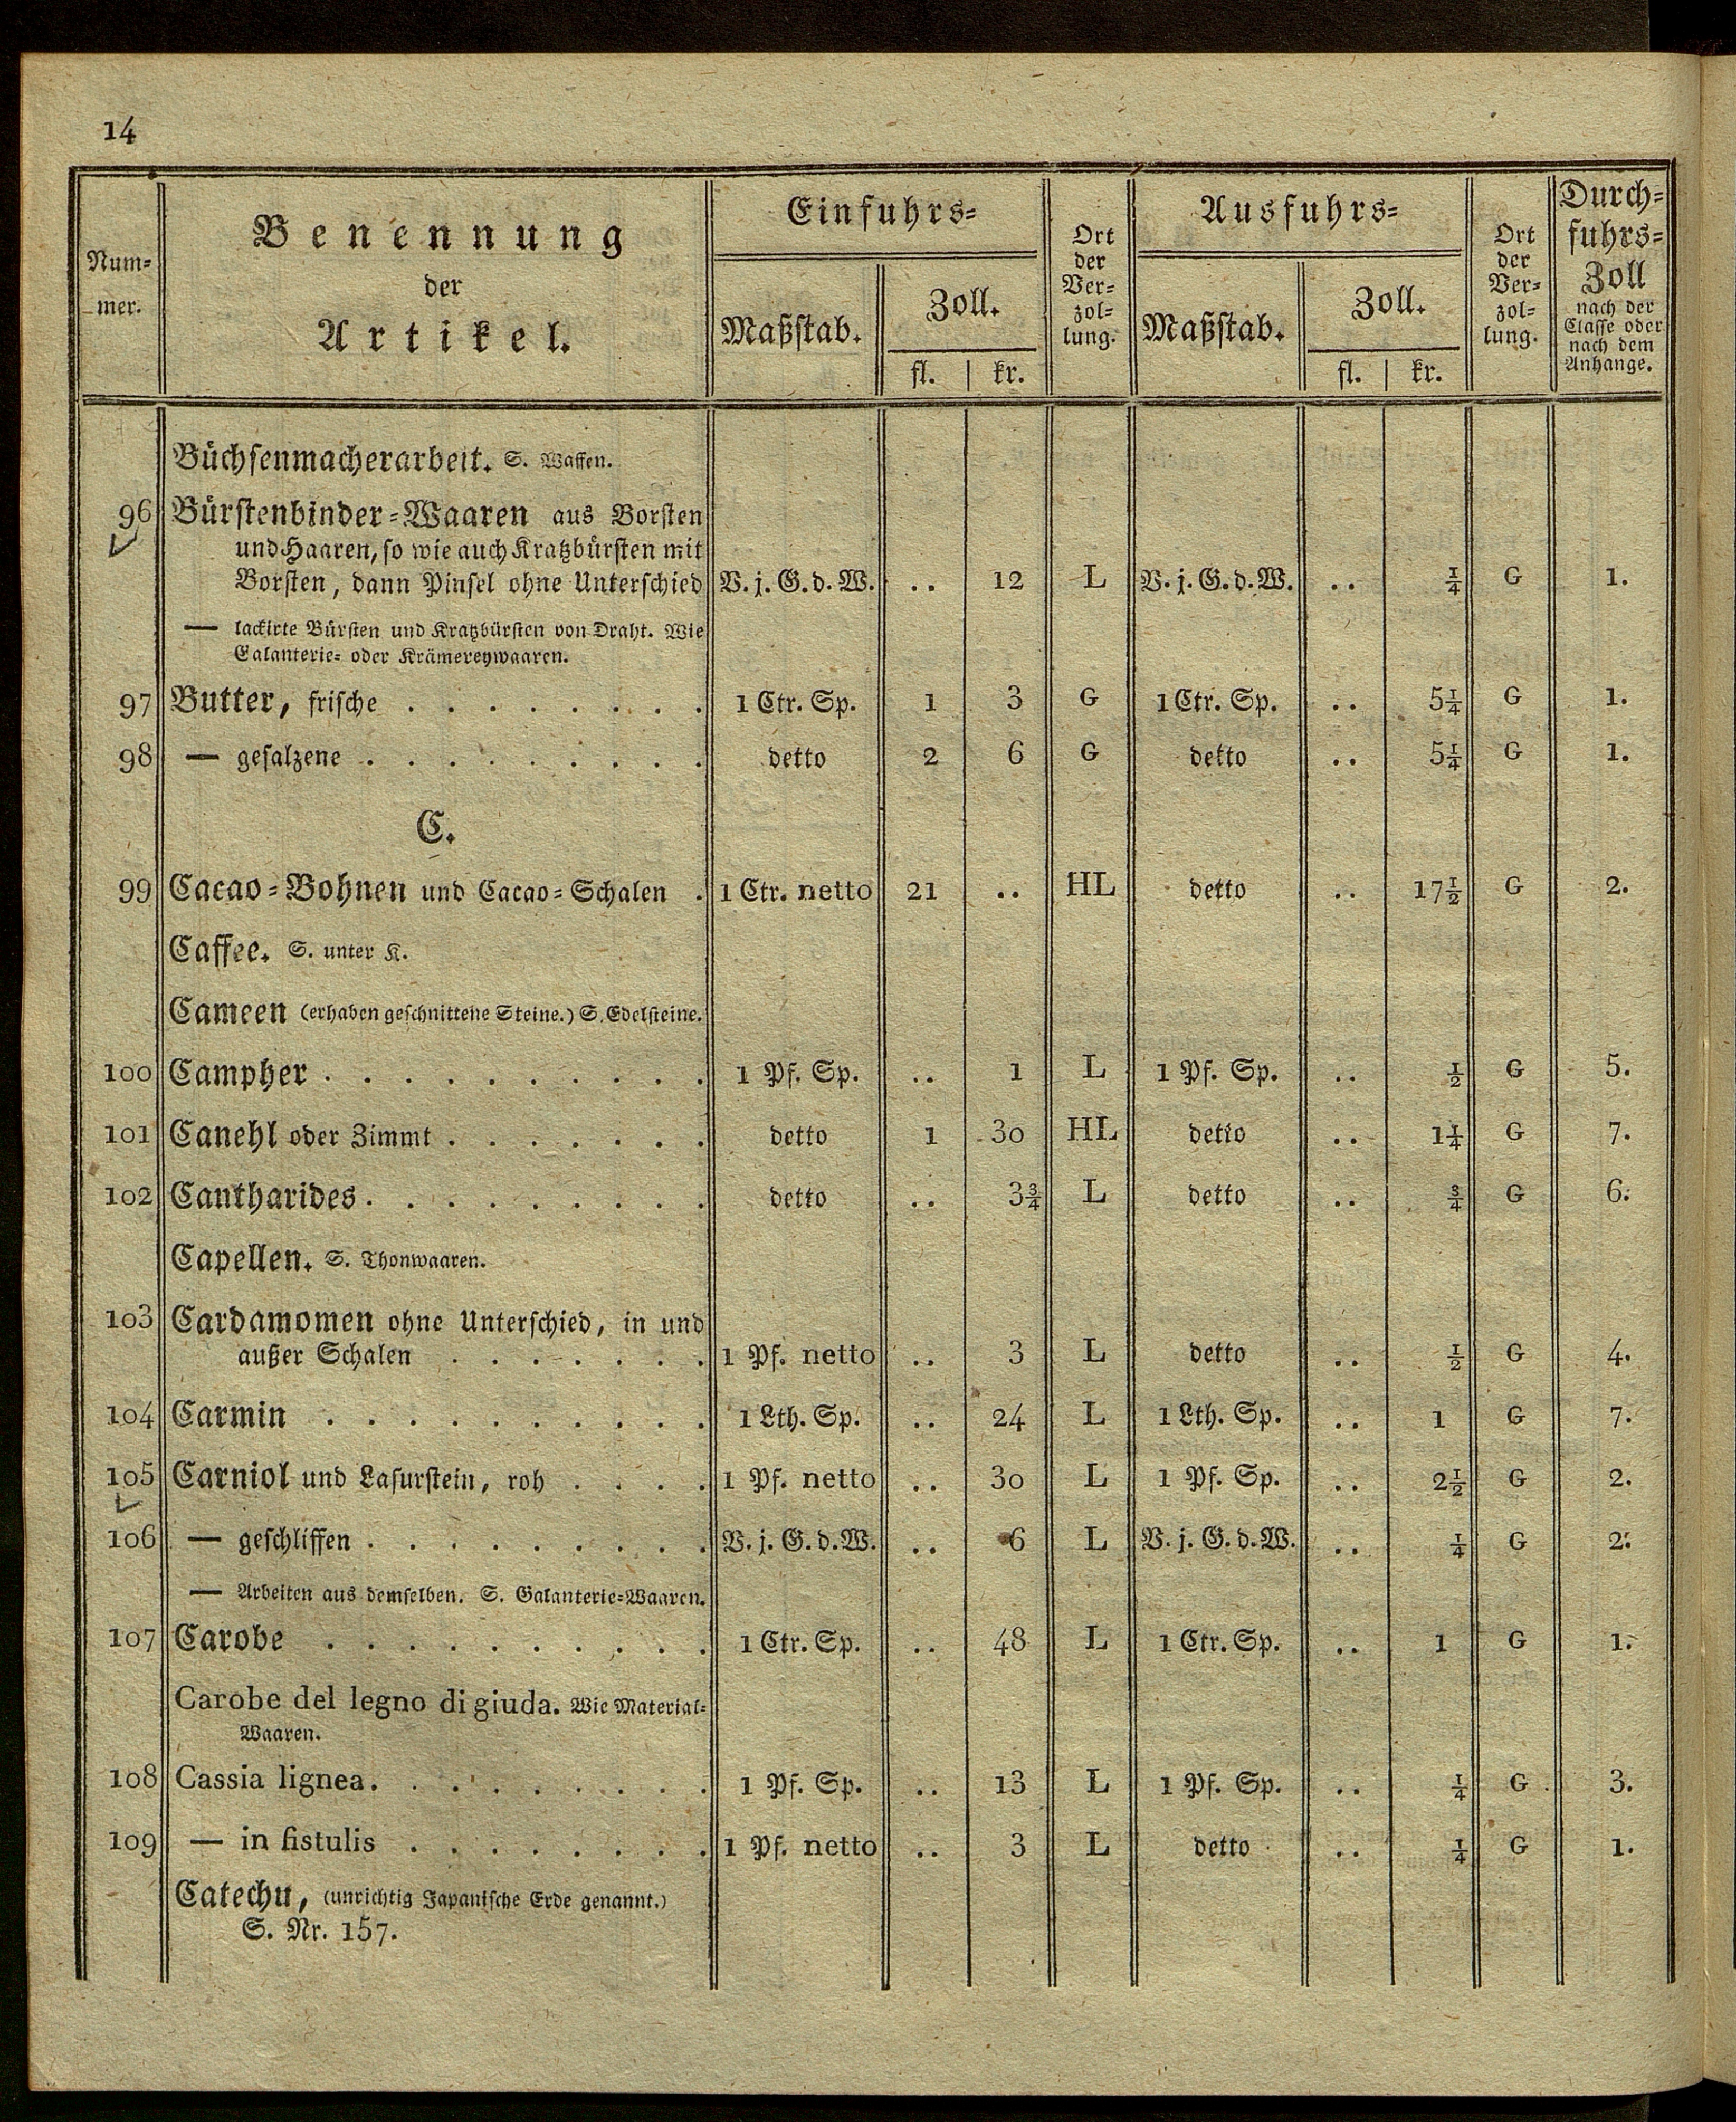 14
Num-
mer.
Benennung
der
Artikel.
Einfuhrs-
Maßstab.
Zoll.
fl. | kr.
Ort
der
Ver-
zol-
lung.
Ausfuhrs-
Maßstab.
Zoll.
fl. | kr.
Ort
der
Ver-
zol-
lung.
Durch-
fuhrs-
Zoll
nach der
Classe oder
nach dem
Anhange.
Büchsenmacherarbeit. S. Waffen.
96 Bürstenbinder-Waaren aus Borsten
und Haaren, so wie auch Kratzbürsten mit
Borsten, dann Pinsel ohne Unterschied V. j. G. d. W. .. 12 L V. j. G. d. W. .. ¼ G 1.
— lackirte Bürsten und Kratzbürsten von Draht. Wie
Galanterie- oder Krämereywaaren.
97 Butter, frische . . . . . . . . 1 Ctr. Sp. 1 3 G 1 Ctr. Sp. .. 5¼ G 1.
98 — gesalzene . . . . . . . . . detto 2 6 G detto .. 5¼ G 1.
C.
99 Cacao-Bohnen und Cacao-Schalen . 1 Ctr. netto 21 .. HL detto .. 17½ G 2.
Caffee. S. unter K.
Cameen (erhaben geschnittene Steine.) S. Edelsteine.
100 Campher . . . . . . . . . . 1 Pf. Sp. .. 1 L 1 Pf. Sp. .. ½ G 5.
101 Canehl oder Zimmt . . . . . . . detto 1 30 HL detto .. 1¼ G 7.
102 Cantharides . . . . . . . . . detto .. 3¾ L detto .. ¾ G 6.
Capellen. S. Thonwaaren.
103 Cardamomen ohne Unterschied, in und
außer Schalen . . . . . . . 1 Pf. netto .. 3 L detto .. ½ G 4.
104 Carmin . . . . . . . . . . 1 Lth. Sp. .. 24 L 1 Lth. Sp. .. 1 G 7.
105 Carniol und Lasurstein, roh . . . . 1 Pf. netto .. 30 L 1 Pf. Sp. .. 2½ G 2.
106 — geschliffen . . . . . . . . . V. j. G. d. W. .. 6 L V. j. G. d. W. .. ¼ G 2.
— Arbeiten aus demselben. S. Galanterie-Waaren.
107 Carobe . . . . . . . . . . 1 Ctr. Sp. .. 48 L 1 Ctr. Sp. .. 1 G 1.
Carobe del legno di giuda. Wie Material-
Waaren.
108 Cassia lignea . . . . . . . . . 1 Pf. Sp. .. 13 L 1 Pf. Sp. .. ¼ G 3.
109 — in fistulis . . . . . . . . 1 Pf. netto .. 3 L detto .. ¼ G 1.
Catechu, (unrichtig Japanische Erde genannt.)
S. Nr. 157.